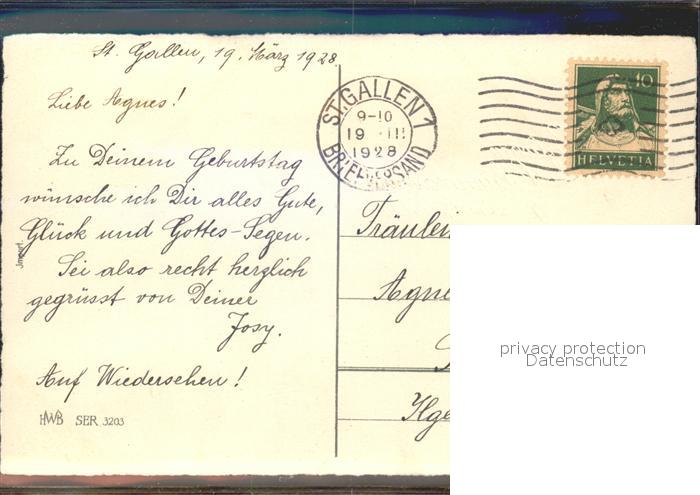 St. Gallen, 19. März 1928
Liebe Agnes!
Zu Deinem Geburtstag
wünsche ich Dir alles Gute,
Glück und Gottes-Segen.
Sei also recht herzlich
gegrüsst von Deiner
Josy.
Auf Wiedersehen!
HWB SER. 3203
Import.
ST. GALLEN 1
9-10
19 III
1928
BRIEFVERSAND
10
HELVETIA
Fräulein
Agne
Ilge
privacy protection
Datenschutz